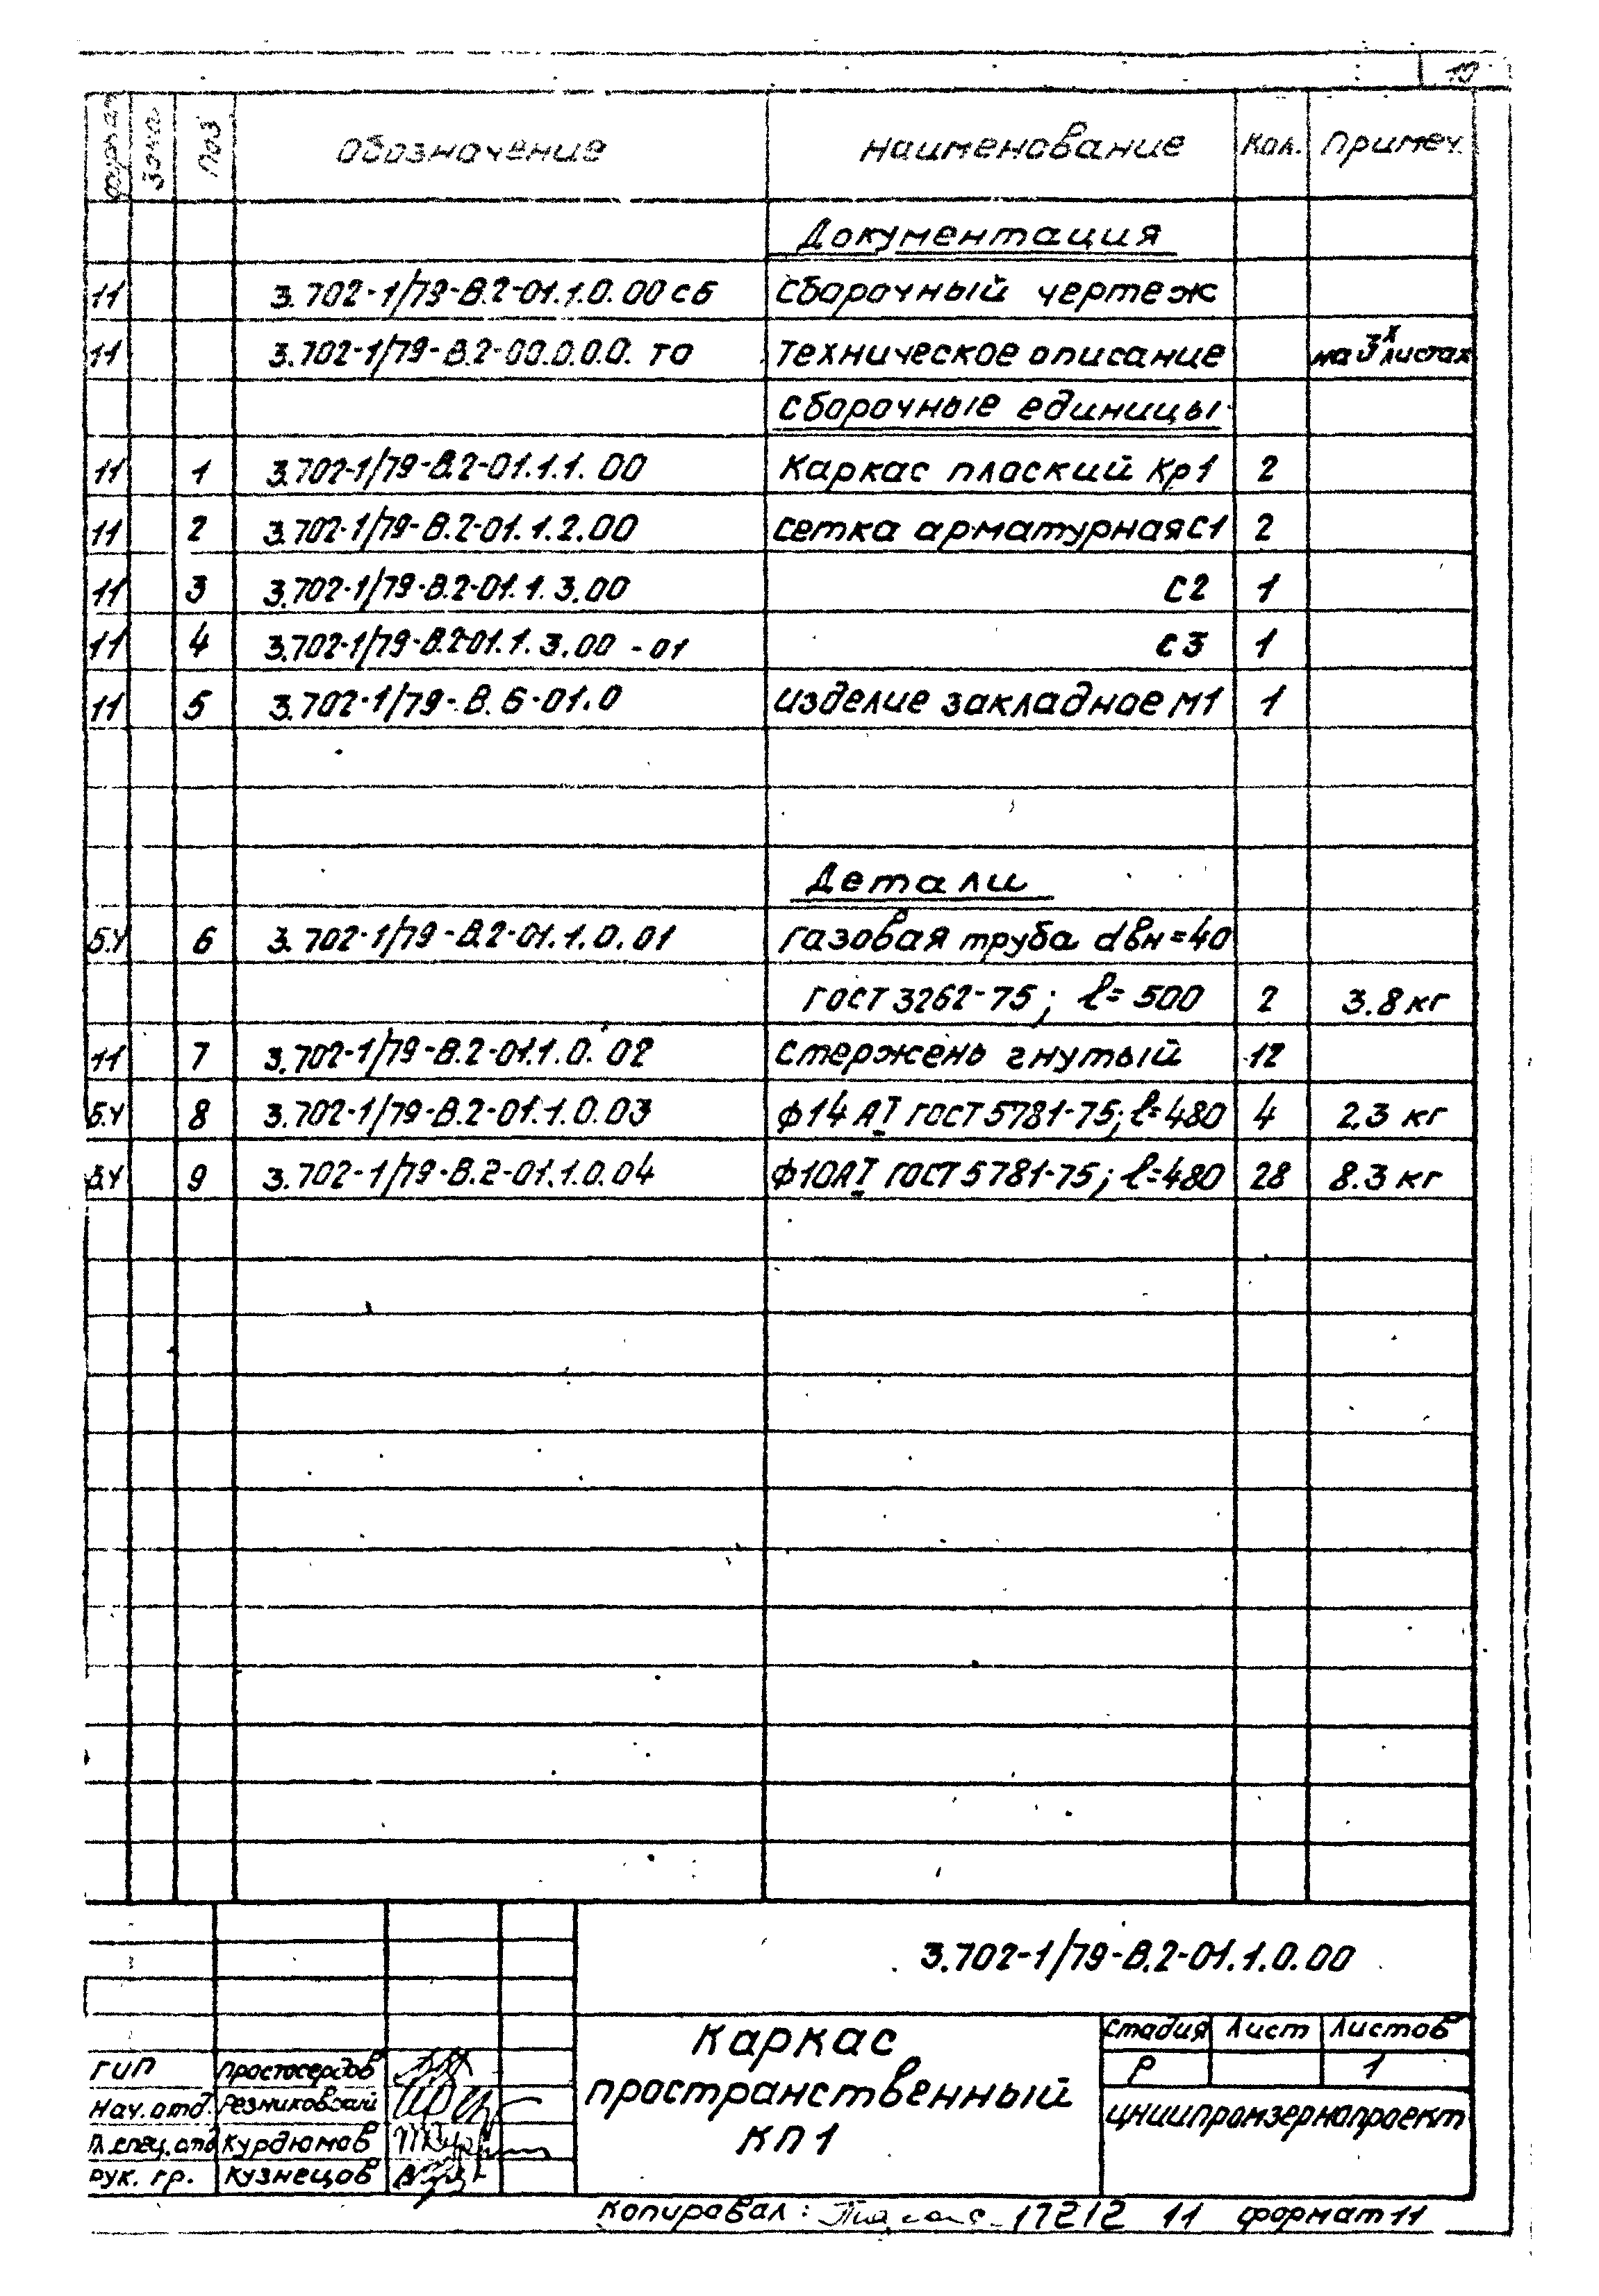 10
формат зона поз обозначение наименование Кол. Примеч.
Документация
11 3.702-1/79-В.2-01.1.0.00 сб сборочный чертеж
11 3.702-1/79-В.2-00.0.0.0. то техническое описание на 3х листах
сборочные единицы
11 1 3.702-1/79-В.2-01.1.1.00 каркас плоский Кр1 2
11 2 3.702-1/79-В.2-01.1.2.00 сетка арматурная С1 2
11 3 3.702-1/79-В.2-01.1.3.00 С2 1
11 4 3.702-1/79-В.2-01.1.3.00-01 С3 1
11 5 3.702-1/79-В.6-01.0 изделие закладное М1 1
Детали
б.ч 6 3.702-1/79-В.2-01.1.0.01 газовая труба dвн=40
ГОСТ 3262-75; ℓ=500 2 3.8 кг
11 7 3.702-1/79-В.2-01.1.0.02 стержень гнутый 12
б.ч 8 3.702-1/79-В.2-01.1.0.03 ф14 АI ГОСТ 5781-75; ℓ=480 4 2.3 кг
б.ч 9 3.702-1/79-В.2-01.1.0.04 ф10 АI ГОСТ 5781-75; ℓ=480 28 8.3 кг
3.702-1/79-В.2-01.1.0.00
каркас
пространственный
КП1
стадия лист листов
Р 1
цниипромзернопроект
ГИП Простосердов
Нач. отд. Резниковский
гл. спец. отд Курдюмов
рук. гр. Кузнецов
копировал: 17212 11 формат 11